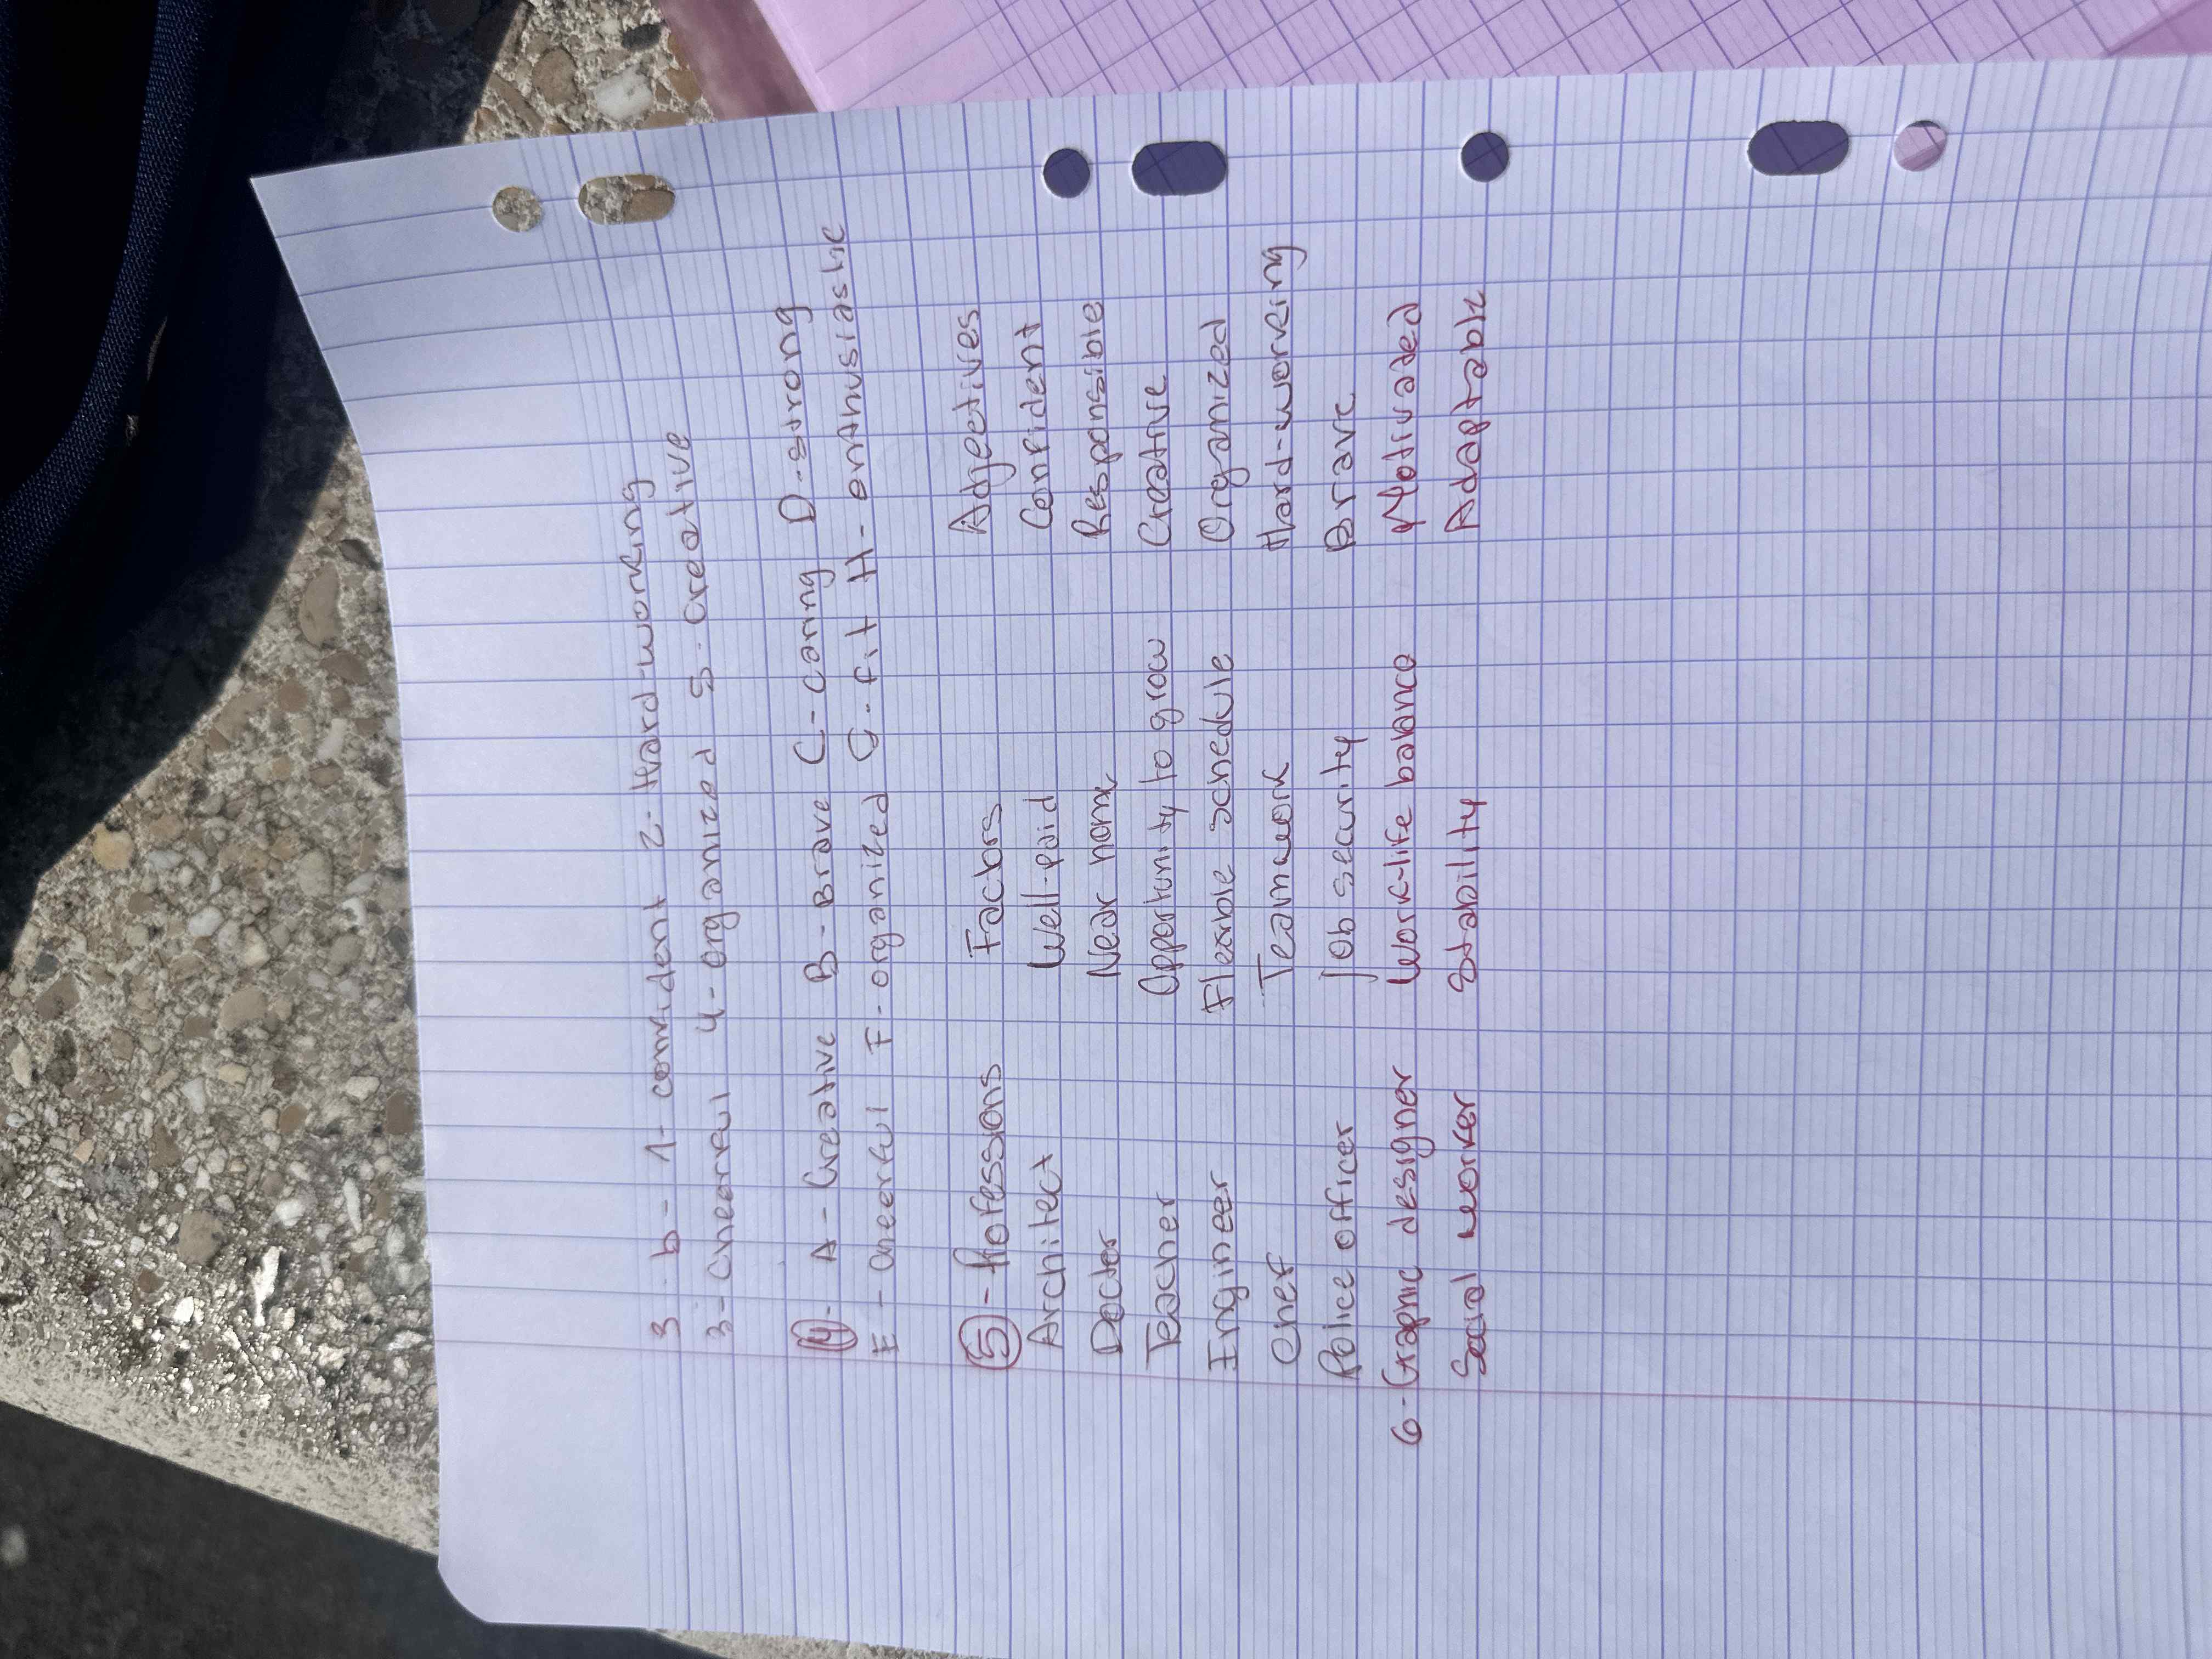 3 b - 1 - confident 2 - Hard-working
3 - cheerful 4 - organized 5 - creative
4 - A - Creative B - Brave C - caring D - strong
E - cheerful F - organized G - fit H - enthusiastic
5 - Professions Factors Adjectives
Architect Well-paid Confident
Doctor Near home Responsible
Teacher Opportunity to grow Creative
Engineer Flexible schedule Organized
Chef Teamwork Hard-working
Police officer Job security Brave
6 - Graphic designer Work-life balance Motivated
Social worker Stability Adaptable